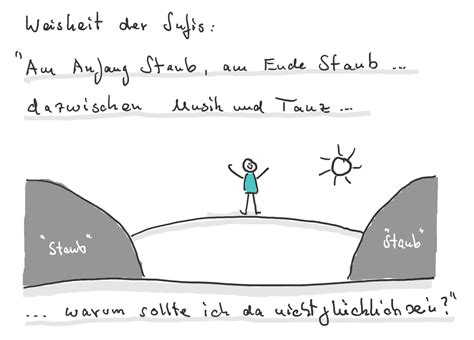 Weisheit der Sufis:
"Am Anfang Staub, am Ende Staub ...
dazwischen Musik und Tanz ...
"Staub"
"Staub"
... warum sollte ich da nicht glücklich sein?"